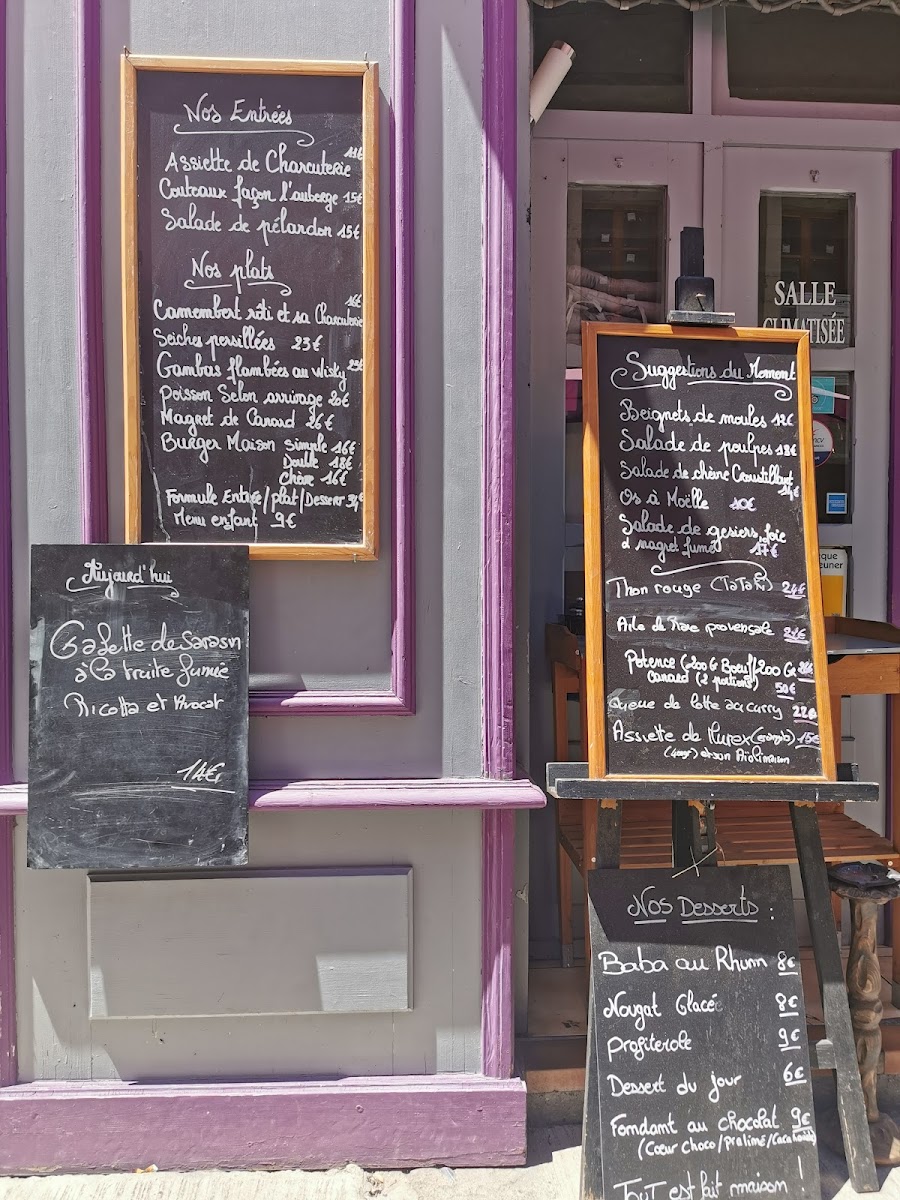 Nos Entrées
Assiette de Charcuterie
Couteaux façon l'auberge 15€
Salade de pélardon 15€
Nos plats
Camembert rôti et sa Charcuterie 16€
Seiches persillées 23€
Gambas flambées au wisky
Poisson Selon arrivage 20€
Magret de Canard 26€
Burger Maison Simple 16€
Double 18€
Chèvre 16€
Formule Entrée/plat/Dessert
Menu enfant 9€
Aujourd'hui
Galette de Sarasin
à la truite fumée
Ricotta et Avocat
14€
SALLE
CLIMATISÉE
Suggestions du Moment
Beignets de moules 12€
Salade de poulpes 18€
Salade de chèvre Croustillant
14€
Os à Moëlle 10€
Salade de gesiers, foie
et magret fumé 17€
Thon rouge (TATAKI) 24€
Aile de Raie provençale 21€
Potence (200G Boeuff/200 Gr
Canard (2 portions) 50€
Queue de lotte au curry 22€
Assiette de Murex (escargots) 15€
(400gr) et son Aïoli maison
Nos Desserts :
Baba au Rhum 8€
Nougat Glacé 8€
Profiterole 9€
Dessert du jour 6€
Fondant au chocolat 9€
(Cœur Choco/Praliné/Cacahuète)
Tout est fait maison !